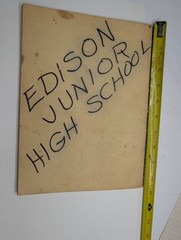 EDISON
JUNIOR
HIGH SCHOOL